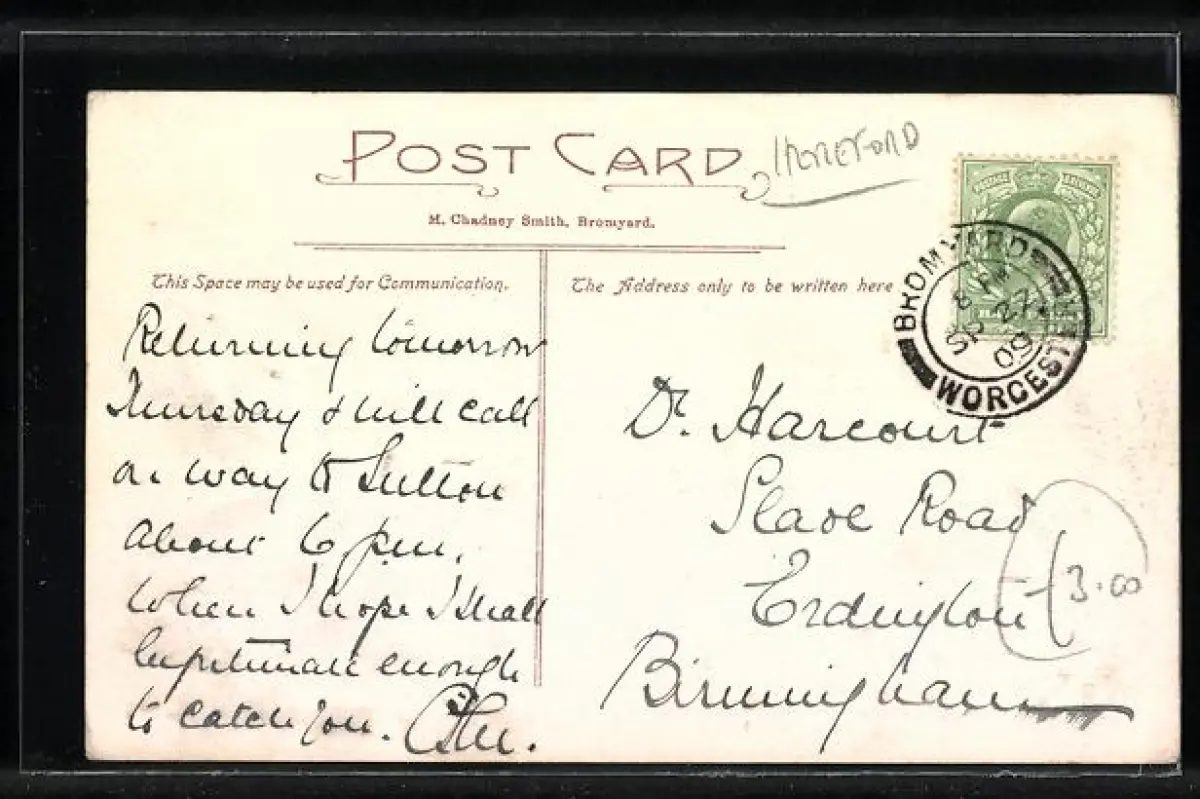 POST CARD
HEREFORD
M. Chadney Smith, Bromyard.
This Space may be used for Communication.
The Address only to be written here
BROMYARD
8 AM
SP 27
09
WORCESTER
Returning tomorrow
Thursday & will call
on way to Sutton
about 6 pm.
When I hope I shall
be fortunate enough
to catch you.
Dr. Harcourt
Slade Road
Erdington
Birmingham
3.00